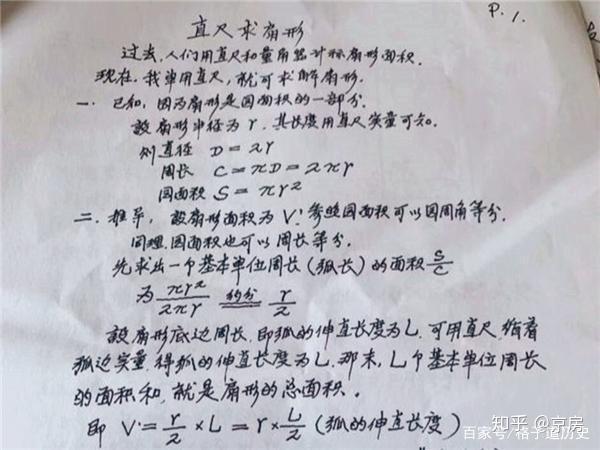 P.1.
直尺求扇形
过去,人们用直尺和量角器计标扇形面积.
现在,我单用直尺,就可求解扇形.
一. 已知,因为扇形是园面积的一部分.
設扇形半径为r,其长度用直尺实量可知.
则直径 D=2r
周长 C=πD=2πr
园面积 S=πr²
二. 推导,設扇形面积为V',参照园面积可以园周角等分.
同理,园面积也可以周长等分.
先求出一个基本单位周长(弧长)的面积 S/C
为 πr²/2πr 约分 r/2
設扇形底边周长,即弧的伸直长度为L,可用直尺,绕着
弧边实量,得弧的伸直长度为L.那末,L个基本单位周长
的面积和,就是扇形的总面积.
即 V'=r/2×L=r×L/2(弧的伸直长度)
知乎 @京房
百家号/格子道历史